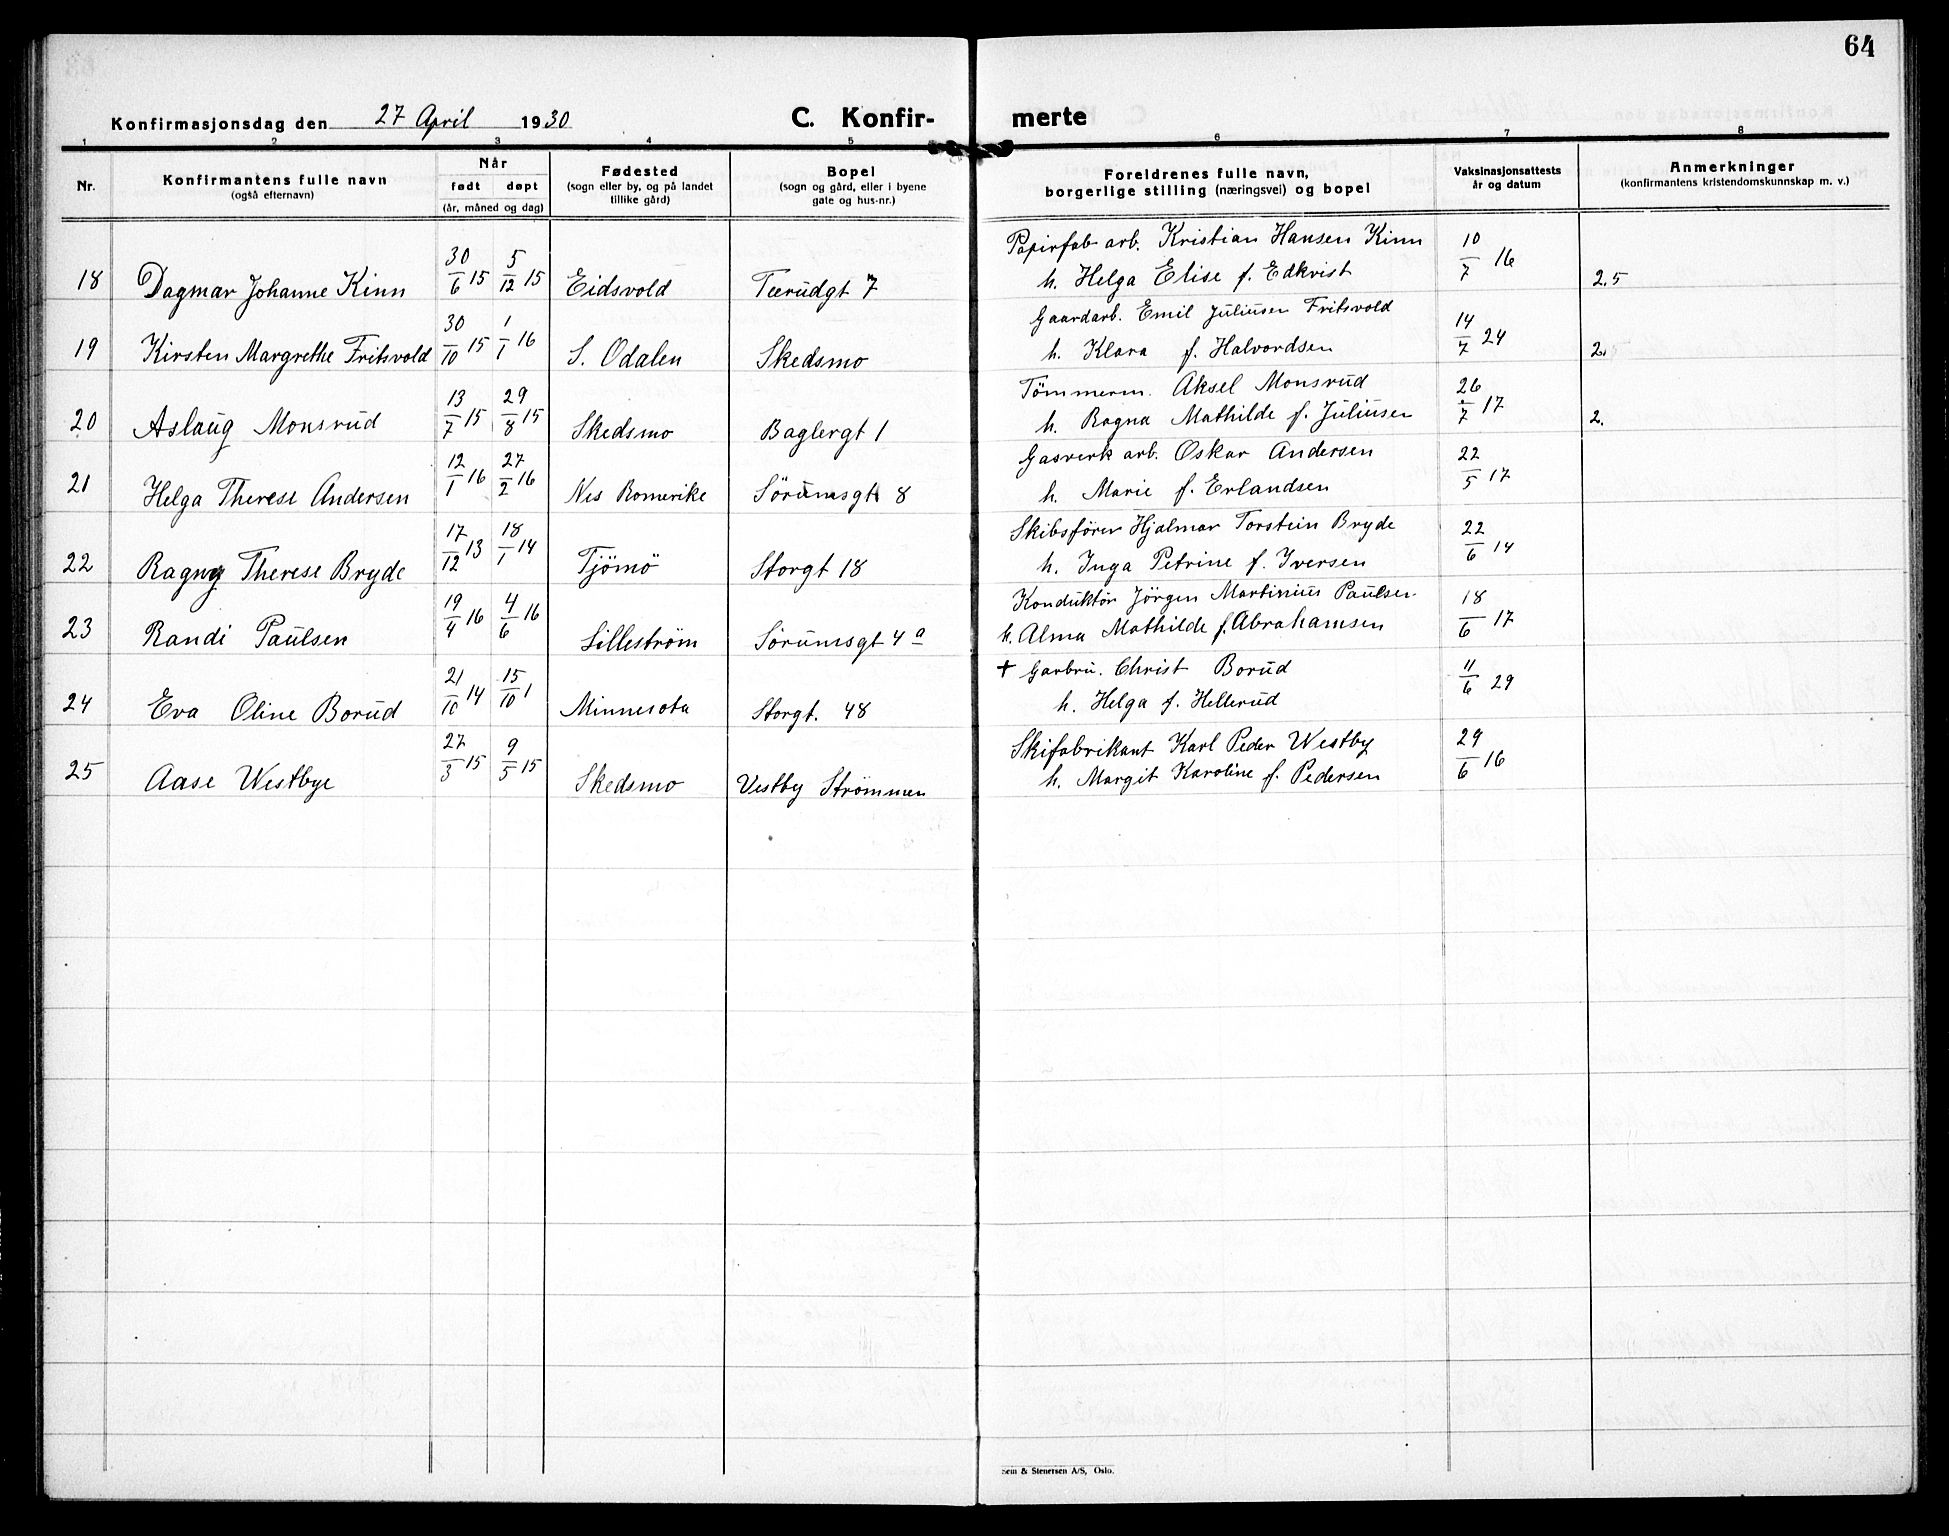 64
Konfirmasjonsdag den 27 April 1930 C. Konfir- merte
1 2 3 4 5 6 7 8
Nr. Konfirmantens fulle navn (også efternavn) Når født døpt (år, måned og dag) Fødested (sogn eller by, og på landet tillike gård) Bopel (sogn og gård, eller i byene gate og hus-nr.) Foreldrenes fulle navn, borgerlige stilling (næringsvei) og bopel Vaksinasjonsattests år og datum Anmerkninger (konfirmantens kristendomskunnskap m. v.)
18 Dagmar Johanne Kinn 30/6 15 5/12 15 Eidsvold Teerudgt 7 Papirfab arb. Kristian Hansen Kinn 10/7 16
h. Helga Elise f. Edkvist 2.5
19 Kirsten Margrethe Fritsvold 30/10 15 1/1 16 S. Odalen Skedsmo Gaardarb. Emil Juliusen Fritsvold 14/7 24
h. Klara f. Halvordsen 2.5
20 Aslaug Monsrud 13/7 15 29/8 15 Skedsmo Baglergt 1 Tömmerm. Aksel Monsrud 26/7 17
h. Ragna Mathilde f. Juliusen 2.
21 Helga Therese Andersen 12/1 16 27/2 16 Nes Romerike Sörumsgt 8 Gasverk arb. Oskar Andersen 22/5 17
h. Marie f. Erlandsen
22 Ragny Therese Bryde 17/12 13 18/1 14 Tjömö Storgt 18 Skibsförer Hjalmar Torstein Bryde 22/6 14
h. Inga Petrine f. Iversen
23 Randi Paulsen 19/4 16 4/6 16 Lilleström Sörumsgt 4a Konduktör Jörgen Martinius Paulsen 18/6 17
h. Alma Mathilde f. Abrahamsen
24 Eva Oline Borud 21/10 14 15/10 1 Minnesota Storgt. 48 + Garbru. Christ Borud 11/6 29
h. Helga f. Hellerud
25 Aase Westbye 27/3 15 9/5 15 Skedsmo Vestby Strömmen Skifabrikant Karl Peder Westby 29/6 16
h. Margit Karoline f. Pedersen
Sem & Stenersen A/S, Oslo.